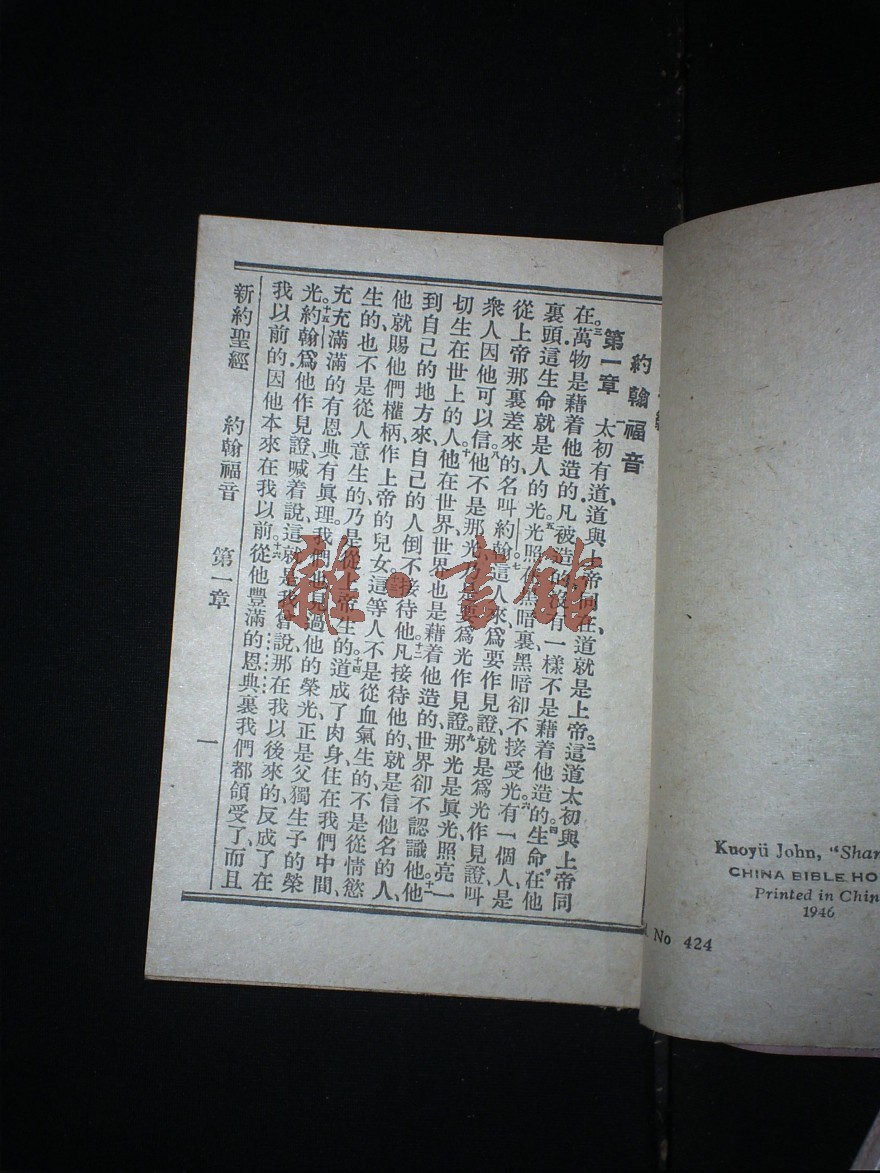 約翰福音
第一章 一太初有道、道與上帝同在、道就是上帝。二這道太初與上帝同
在。三萬物是藉着他造的.凡被造的、沒有一樣不是藉着他造的。四生命在他
裏頭.這生命就是人的光。五光照在黑暗裏、黑暗卻不接受光。六有一個人、是
從上帝那裏差來的、名叫約翰。七這人來、爲要作見證、就是爲光作見證、叫
衆人因他可以信。八他不是那光、乃是要爲光作見證。九那光是眞光、照亮一
切生在世上的人。十他在世界、世界也是藉着他造的、世界卻不認識他。十一他
到自己的地方來、自己的人倒不接待他。十二凡接待他的、就是信他名的人、
他就賜他們權柄、作上帝的兒女。十三這等人不是從血氣生的、不是從情慾
生的、也不是從人意生的、乃是從上帝生的。十四道成了肉身、住在我們中間、
充充滿滿的有恩典有眞理.我們也見過他的榮光、正是父獨生子的榮
光。十五約翰爲他作見證、喊着說、這就是我曾說、那在我以後來的、反成了在
我以前的.因他本來在我以前。十六從他豐滿的恩典裏、我們都領受了、而且
新約聖經 約翰福音 第一章 一
雜·書館
Kuoyü John, "Shan
CHINA BIBLE HO
Printed in Chin
1946
No 424